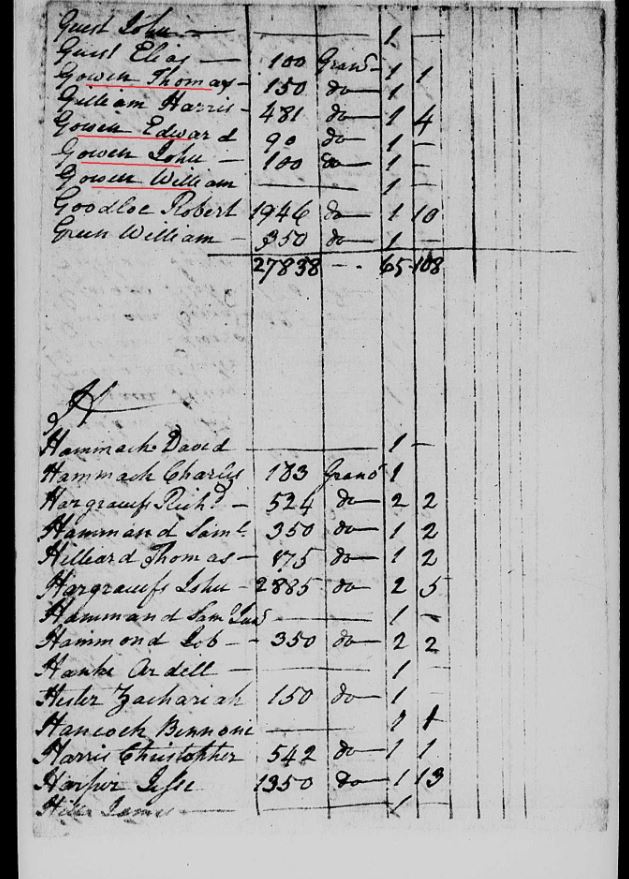 Guest John — — 1 —
Guest Elias — 100 Gran^d — 1 1
Gowen Thomas — 150 do — 1
Gilliam Harris — 481 do — 1 4
Gowen Edward 90 do — 1 —
Gowen John — 100 do — 1 —
Gowen William — 1 —
Goodloe Robert 1946 do — 1 10
Green William — 350 do — 1 —
27838 — 65 108
H
Hammack David — 1 —
Hammack Charles 183 Gran^d 1
Hargraves Rich^d — 524 do — 2 2
Hammand Sam^l 350 do — 1 2
Hilliard Thomas — 175 do — 1 2
Hargraves John — 2885 do — 2 5
Hammand Sam^l — 1 —
Hammond Job — 350 do — 2 2
Hanks Ardell — 1 —
Hester Zachariah 150 do — 1
Hancock Bennone — 1 1
Harris Christopher 542 do — 1 1
Harper Jesse 1350 do — 1 13
James — 1